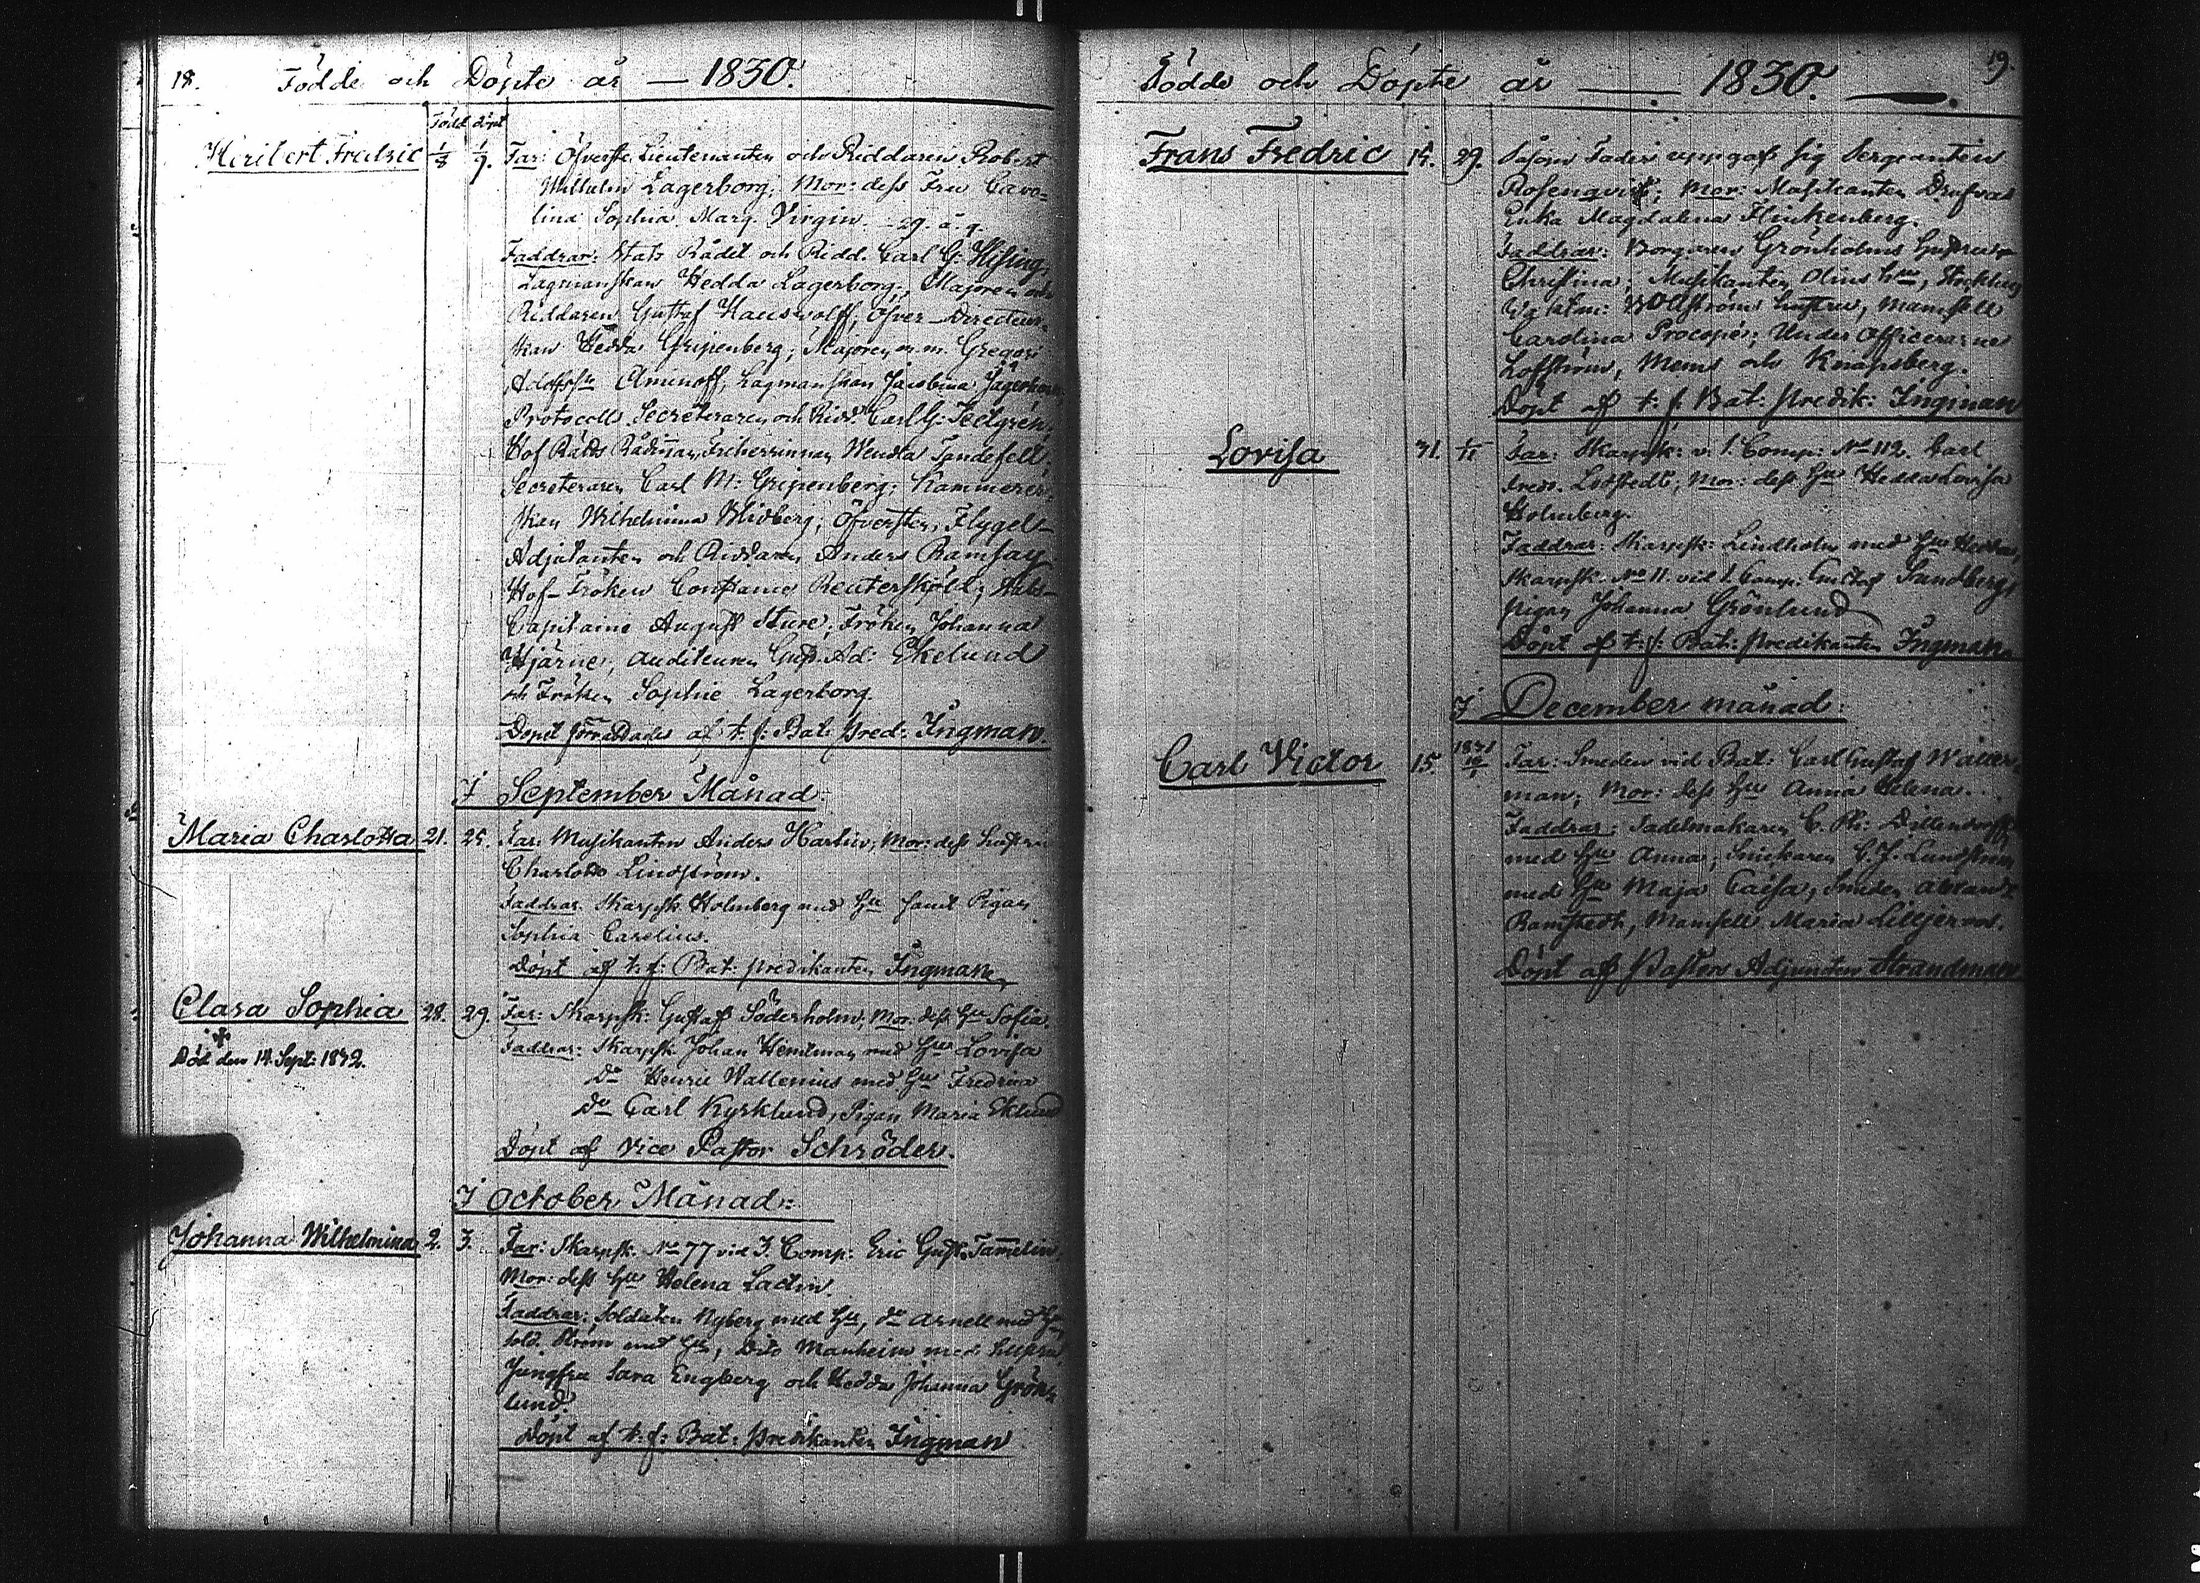 18. Födde och Döpte år — 1830.
Född döpt
Heribert Fredric 1/8 1/9. Far: Öfverste Lieutenanten och Riddaren Robert
Wilhelm Lagerborg; Mor: dess Fru Caro=
lina Sophia Marg. Virgin. 29. å. g.
Faddrar: Stats Rådet och Ridd. Carl G: Hising,
Lagmanskan Hedda Lagerborg, Majoren och
Riddaren Gustaf Hauswolff, Öfver-Directeurs-
skan Hedda Gripenberg; Majoren m.m. Gregori
Adolfss: Aminoff, Lagmanskan Jacobina
Protocolls Secreteraren och Ridd. Carl G:
Hof Rådinnan, Friherrinnan Wendla Tandefelt;
Secreteraren Carl M: Gripenberg; Kammerer-
skan Wilhelmina Widberg; Öfversten, Flygel-
Adjutanten och Riddaren Anders Ramsay
Hof-Fröken Constance Reuterskjöld; Stabs-
Capitaine August Sture; Fröken Johanna
Hjärne, Auditeuren Gust. Ad: Ekelund
och Fröken Sophie Lagerborg.
Dopet förrättades af t. f: Bat: Pred: Ingman.
I September Månad:
Maria Charlotta 21. 25. Far: Musikanten Anders Hartlin; Mor: dess hustru
Charlotta Lindström.
Faddrar: Skarpsk: Holmberg med Hu samt Pigan
Sophia Carelius.
Döpt af t. f: Bat: predikanten Ingman
Clara Sophia 28. 29. Far: Skarpsk: Gustaf Söderholm; Mor: dess Hu Sofia.
Död den 14. Sept: 1832. Faddrar: Skarpsk. Johan med Hu Lovisa
Do Henric Wallenius med Hu Fredrica
Do Carl Kyrklund, Pigan Maria Eklund
Döpt af Vice Pastor Schröder.
I October Månad:
Johanna Wilhelmina 2. 3. Far: Skarpsk. No 77 vid 3. Comp: Eric Gust. Tammelin,
Mor: dess Hu Helena Lactin.
Faddrar: Soldaten Nyberg med Hu, do Arnell med Hu
Sold. Ström med Hu, Dito Manheim med hustru,
Jungfru Sara Engberg och Hedda Johanna Grön-
lund.
Döpt af t: f: Bat: Predikanten Ingman
19.
Födde och Döpte år — 1830.
Frans Fredric 15. 29. Såsom Fader uppgaf sig Sergeanten
Rosenqvist; Mor: Musikanten
Enka Magdalena Flinkenberg.
Faddrar: Borgaren Grönholms hustru
Christina; Musikanten Olins Hu,
hustru, Mamsell
Carolina Procopé; Under Officerarne
Löfström, Mems och Knapsberg.
Döpt af t. f. Bat: predik: Ingman
Lovisa 31. 1/11 Far: Skarpsk: v. 1. Comp: No 112. Carl
Fredr. Lofstedt, Mor: dess Hu Hedda Lovisa
Holmberg.
Faddrar: Skarpsk: Lindholm med Hu Hedda,
Skarpsk. No 11. vid 1. Comp: Gustaf Sandberg,
pigan Johanna Grönlund
Döpt af t: f: Bat: predikanten Ingman.
I December månad:
Carl Victor 15. 1831 Far: Smeden vid Bat: Carl Gustaf Walter-
man; Mor: dess Hu Anna Helena.
Faddrar: Sadelmakaren C. Ph: Dillendorff
med Hu Anna; Snickaren C. J. Lundström
med Hu Maja Caisa, Smeden
Ramstedt, Mamsell Maria Lilljeroos.
Döpt af Pastors Adjuncten Strandman